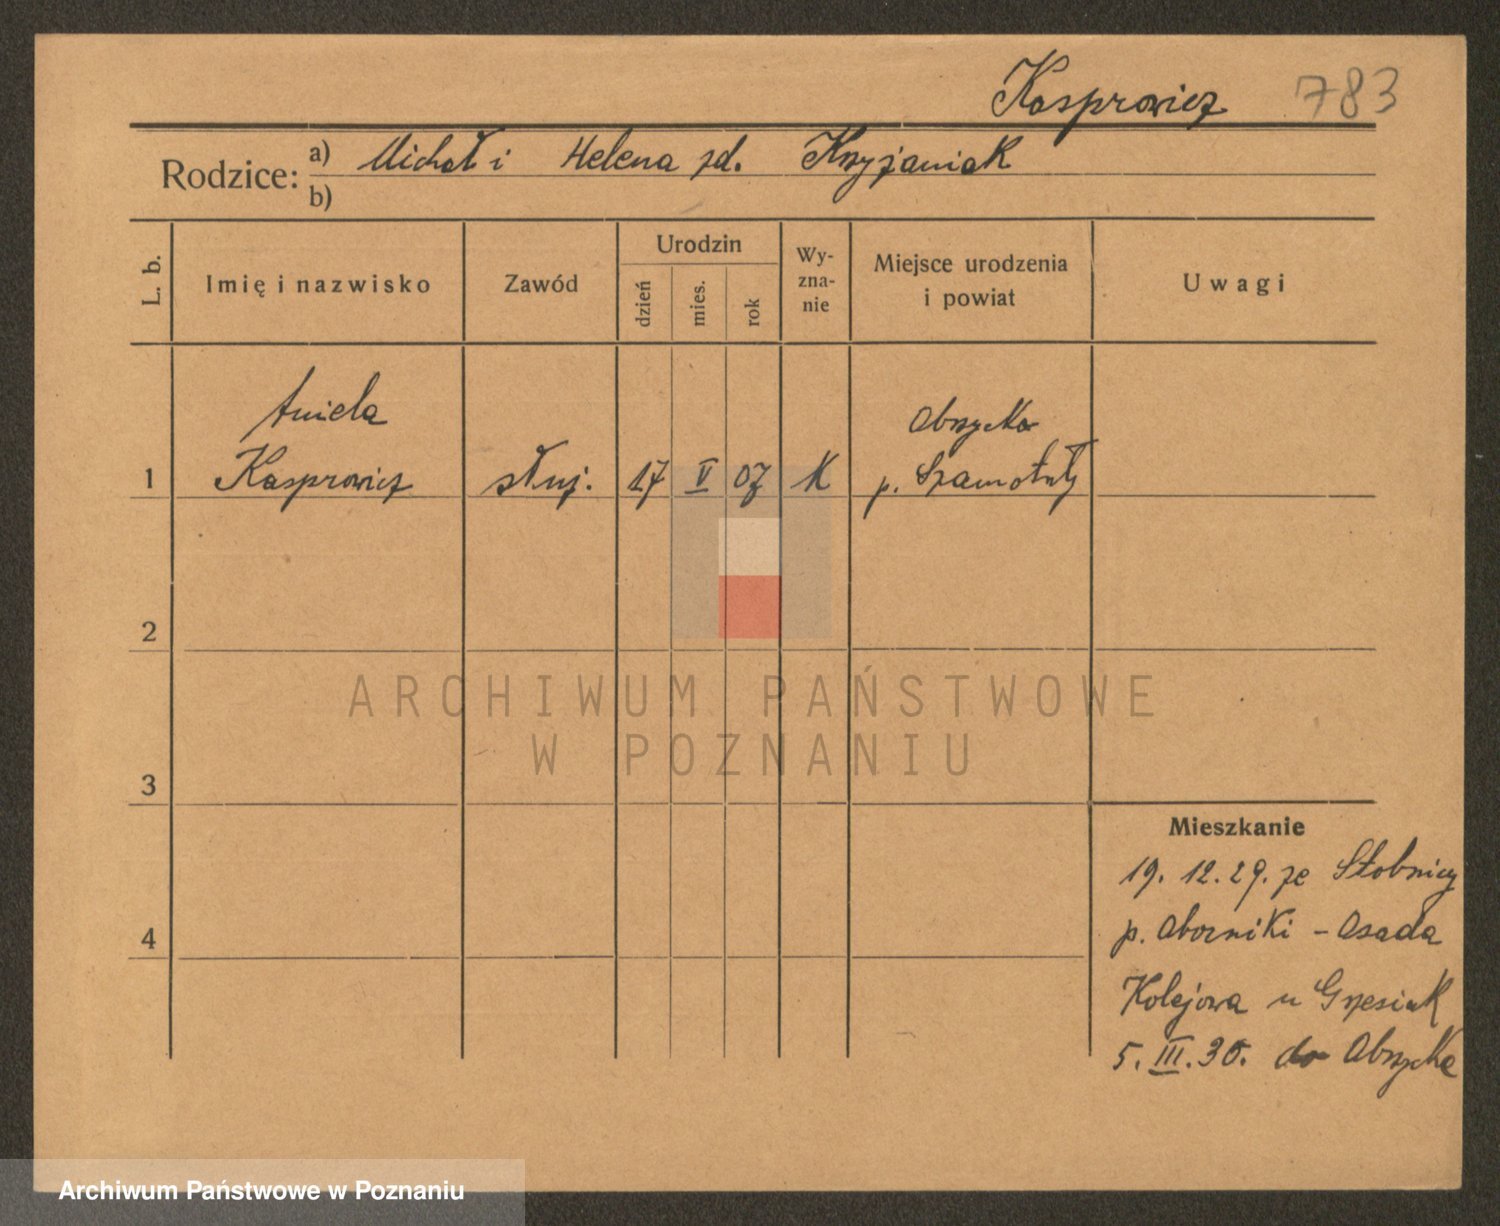 Kasprowicz 783
Rodzice: a) Michał i Helena zd. Krzyżaniak
b)
L. b. Imię i nazwisko Zawód Urodzin dzień mies. rok Wy-zna-nie Miejsce urodzenia i powiat Uwagi
Aniela Obrzycko
1 Kasprowicz służ. 17 V 07 K p. Szamotuły
2
ARCHIWUM PAŃSTWOWE
W POZNANIU
3
Mieszkanie
19. 12. 29. ze Słobnicy
4 p. Oborniki - Osada
Kolejowa u Grzesiak
5. III. 30. do Obrzycka
Archiwum Państwowe w Poznaniu